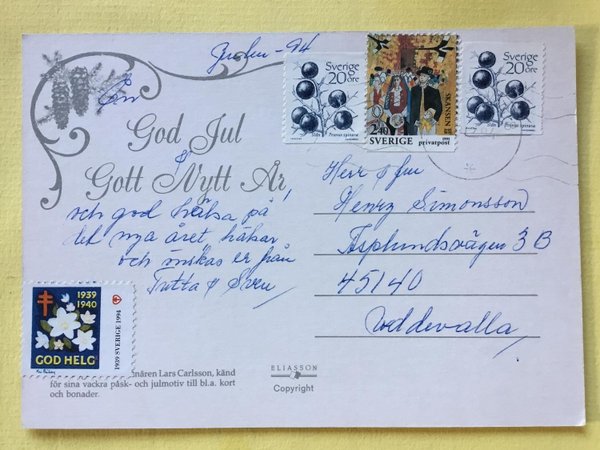 Julen - 94
En
God Jul
&
Gott Nytt År!
och god hälsa på
det nya året, hälsar
och önskas er från
Tutta & Sven
Sverige
20 öre
Slån Prunus spinosa
SKANSEN
2.40
SVERIGE privatpost
Sverige
20 öre
Slån Prunus spinosa
Herr & fru
Henry Simonsson
Asplundsvägen 3 B
45140
Uddevalla
1939
1940
GOD HELG
1939 SVERIGE 1994
nären Lars Carlsson, känd
för sina vackra påsk- och julmotiv till bl.a. kort
och bonader.
ELIASSON
Copyright